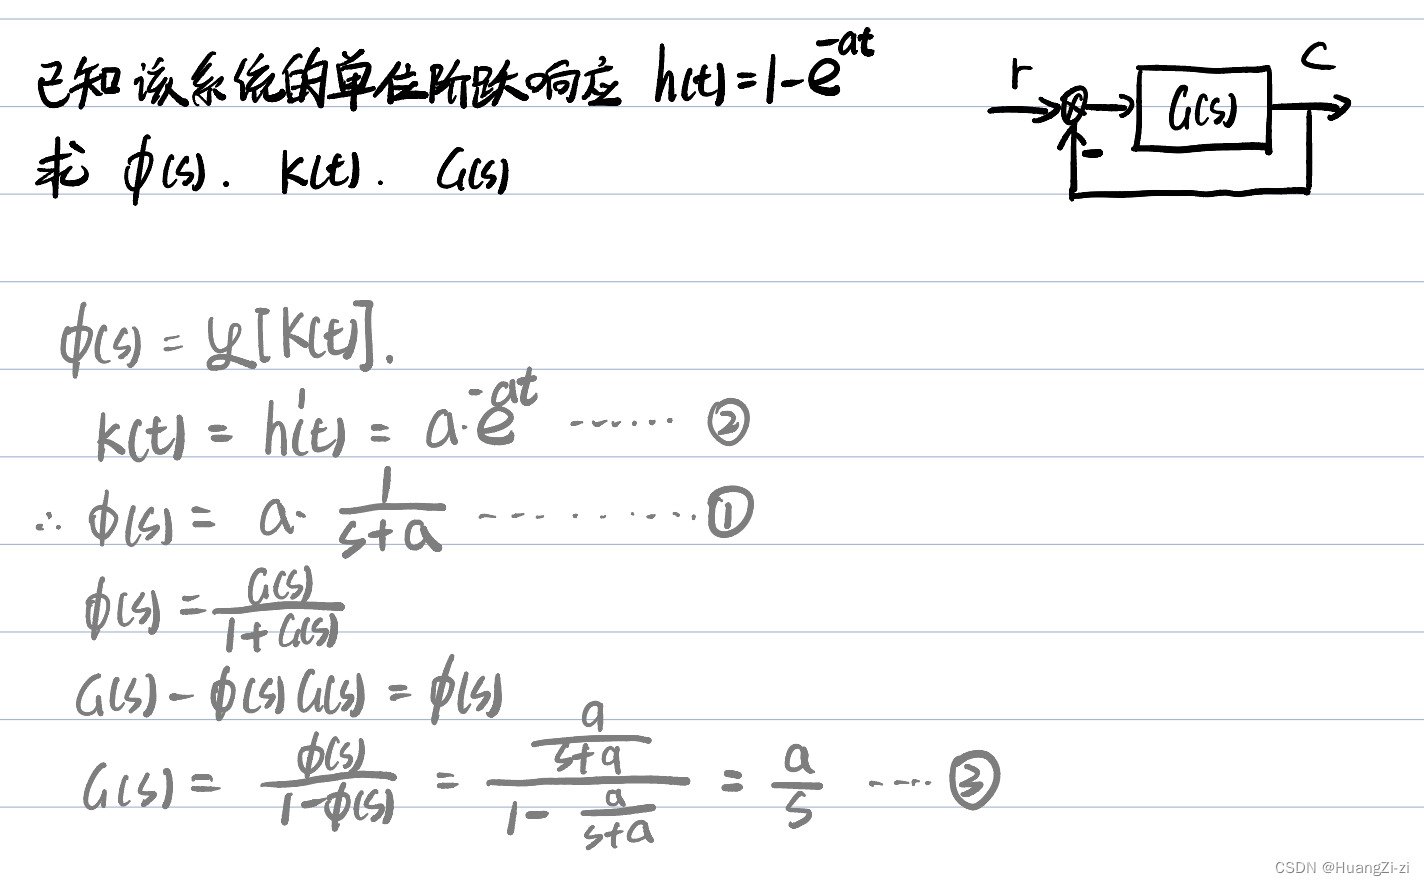 已知该系统的单位阶跃响应 h(t)=1-e^{-at}
求 ϕ(s). k(t). G(s)
r
G(s)
C
-
ϕ(s) = ℒ[k(t)].
k(t) = h'(t) = a·e^{-at} ······ ②
∴ ϕ(s) = a· \frac{1}{s+a} ········· ①
ϕ(s) = \frac{G(s)}{1+G(s)}
G(s) - ϕ(s)G(s) = ϕ(s)
G(s) = \frac{ϕ(s)}{1-ϕ(s)} = \frac{\frac{a}{s+a}}{1-\frac{a}{s+a}} = \frac{a}{s} ····· ③
CSDN @HuangZi-zi